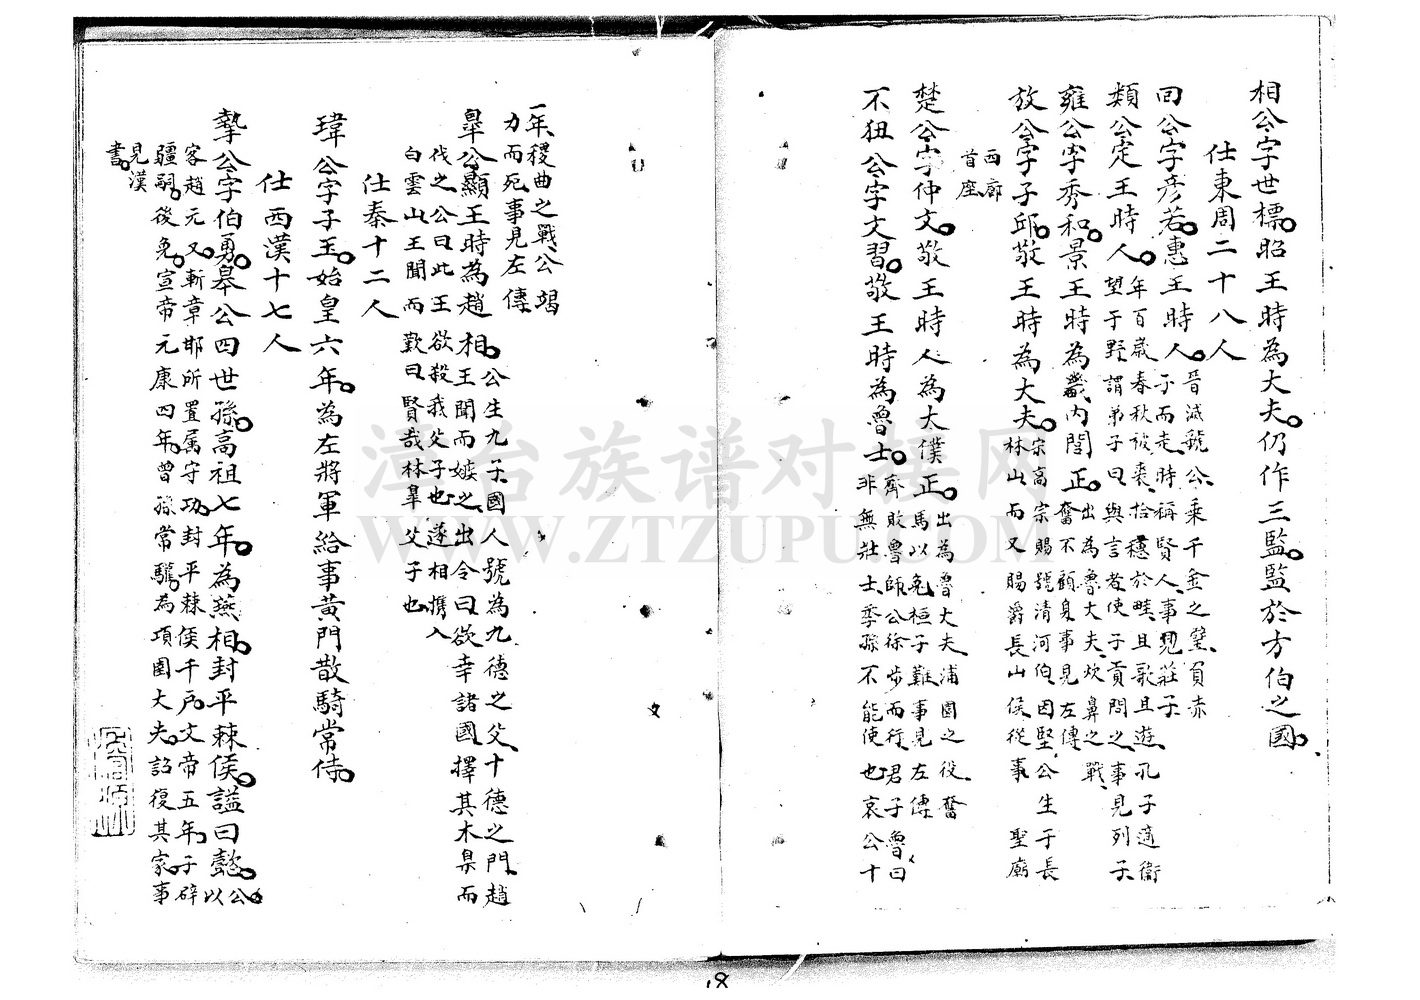 相公字世標昭王時為大夫仍作三監監於方伯之國
仕東周二十八人
回公字彥若惠王時人晉滅虢公乘千金之璧負赤
子而走時稱賢人事見莊子
類公定王時人年百歲春秋被裘拾穗於畦且歌且遊孔子適衛
望于野謂弟子曰與言者使子貢問之事見列子
雍公字秀和景王時為畿內閭正出為魯大夫炊鼻之戰
奮不顧身事見左傳
放公字子邱敬王時為大夫宋高宗賜號清河伯因堅公生于長
林山而又賜爵長山侯從事聖廟
西廊
首座
楚公字仲文敬王時人為大僕正出為魯大夫浦圃之役奮
馬以免桓子難事見左傳
不狃公字文習敬王時為魯士齊敗魯師公徐步而行君子曰魯
非無壯士季孫不能使也哀公十
一年稷曲之戰公竭
力而死事見左傳
皐公顯王時為趙相公生九子國人號為九德之父十德之門趙
王聞而嫉之出令曰欲幸諸國擇其木臬而
伐之公曰此王欲殺我父子也遂相攜入
白雲山王聞而歎曰賢哉林皐父子也
仕秦十二人
瑋公字子玉始皇六年為左將軍給事黃門散騎常侍
仕西漢十七人
摯公字伯勇皋公四世孫高祖七年為燕相封平棘侯謚曰懿公以
客趙元又斬章邯所置属守功封平棘侯千戶文帝五年子辟
疆嗣後免宣帝元康四年曾孫常驩為項圉大夫詔復其家事
見漢
書
澤台族谱对接网
WWW.ZTZUPU.COM
18